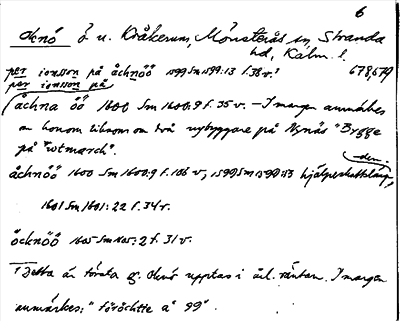 6
Oknö ö u. Kråkerum, Mönsterås sn, Stranda
hd, Kalm. l.
per jonsson på åchnöö 1599 Sm 1599:13 f.38 v.¹ 678,679
per jonsson på
åchna öö 1600 Sm 1600:9 f.35 v. – I margen anmärkes
om honom liksom om två nybyggare på Nynäs "Bygge
på "utmarch".
åchnöö 1600 Sm 1600:9 f.106 v, 1599 Sm 1599:13 hjälpeskattslängden.
1601 Sm 1601:22 f.34 v.
öcknöö 1605 Sm 1605:2 f.31 v.
¹ Detta är första gg. Oknö upptas i årl. räntan. I margen
anmärkes: " föröchtte å 99".